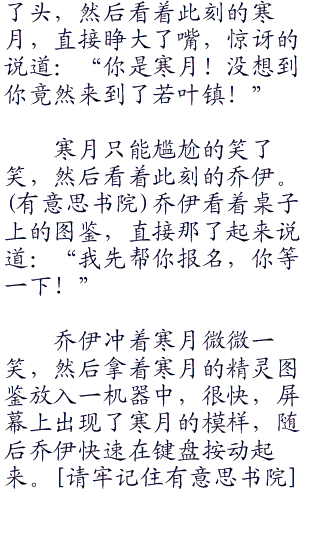 了头，然后看着此刻的寒
月，直接睁大了嘴，惊讶的
说道：“你是寒月！没想到
你竟然来到了若叶镇！”
寒月只能尴尬的笑了
笑，然后看着此刻的乔伊。
(有意思书院)乔伊看着桌子
上的图鉴，直接那了起来说
道：“我先帮你报名，你等
一下！”
乔伊冲着寒月微微一
笑，然后拿着寒月的精灵图
鉴放入一机器中，很快，屏
幕上出现了寒月的模样，随
后乔伊快速在键盘按动起
来。[请牢记住有意思书院]